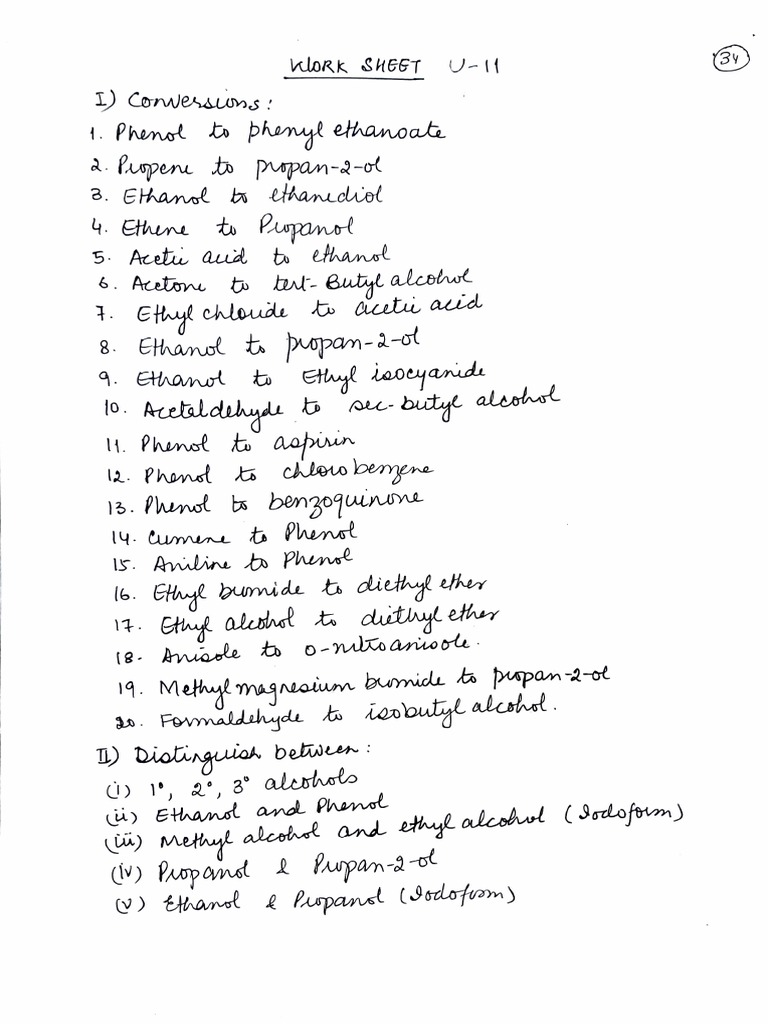 WORK SHEET U-11
34
I) Conversions:
1. Phenol to phenyl ethanoate
2. Propene to propan-2-ol
3. Ethanol to ethanediol
4. Ethene to Propanol
5. Acetic acid to ethanol
6. Acetone to tert-Butyl alcohol
7. Ethyl chloride to acetic acid
8. Ethanol to propan-2-ol
9. Ethanol to Ethyl isocyanide
10. Acetaldehyde to sec-butyl alcohol
11. Phenol to aspirin
12. Phenol to chlorobenzene
13. Phenol to benzoquinone
14. Cumene to Phenol
15. Aniline to Phenol
16. Ethyl bromide to diethyl ether
17. Ethyl alcohol to diethyl ether
18. Anisole to o-nitroanisole.
19. Methyl magnesium bromide to propan-2-ol
20. Formaldehyde to isobutyl alcohol.
II) Distinguish between:
(i) 1°, 2°, 3° alcohols
(ii) Ethanol and Phenol
(iii) Methyl alcohol and ethyl alcohol (Iodoform)
(iv) Propanol & Propan-2-ol
(v) Ethanol & Propanol (Iodoform)